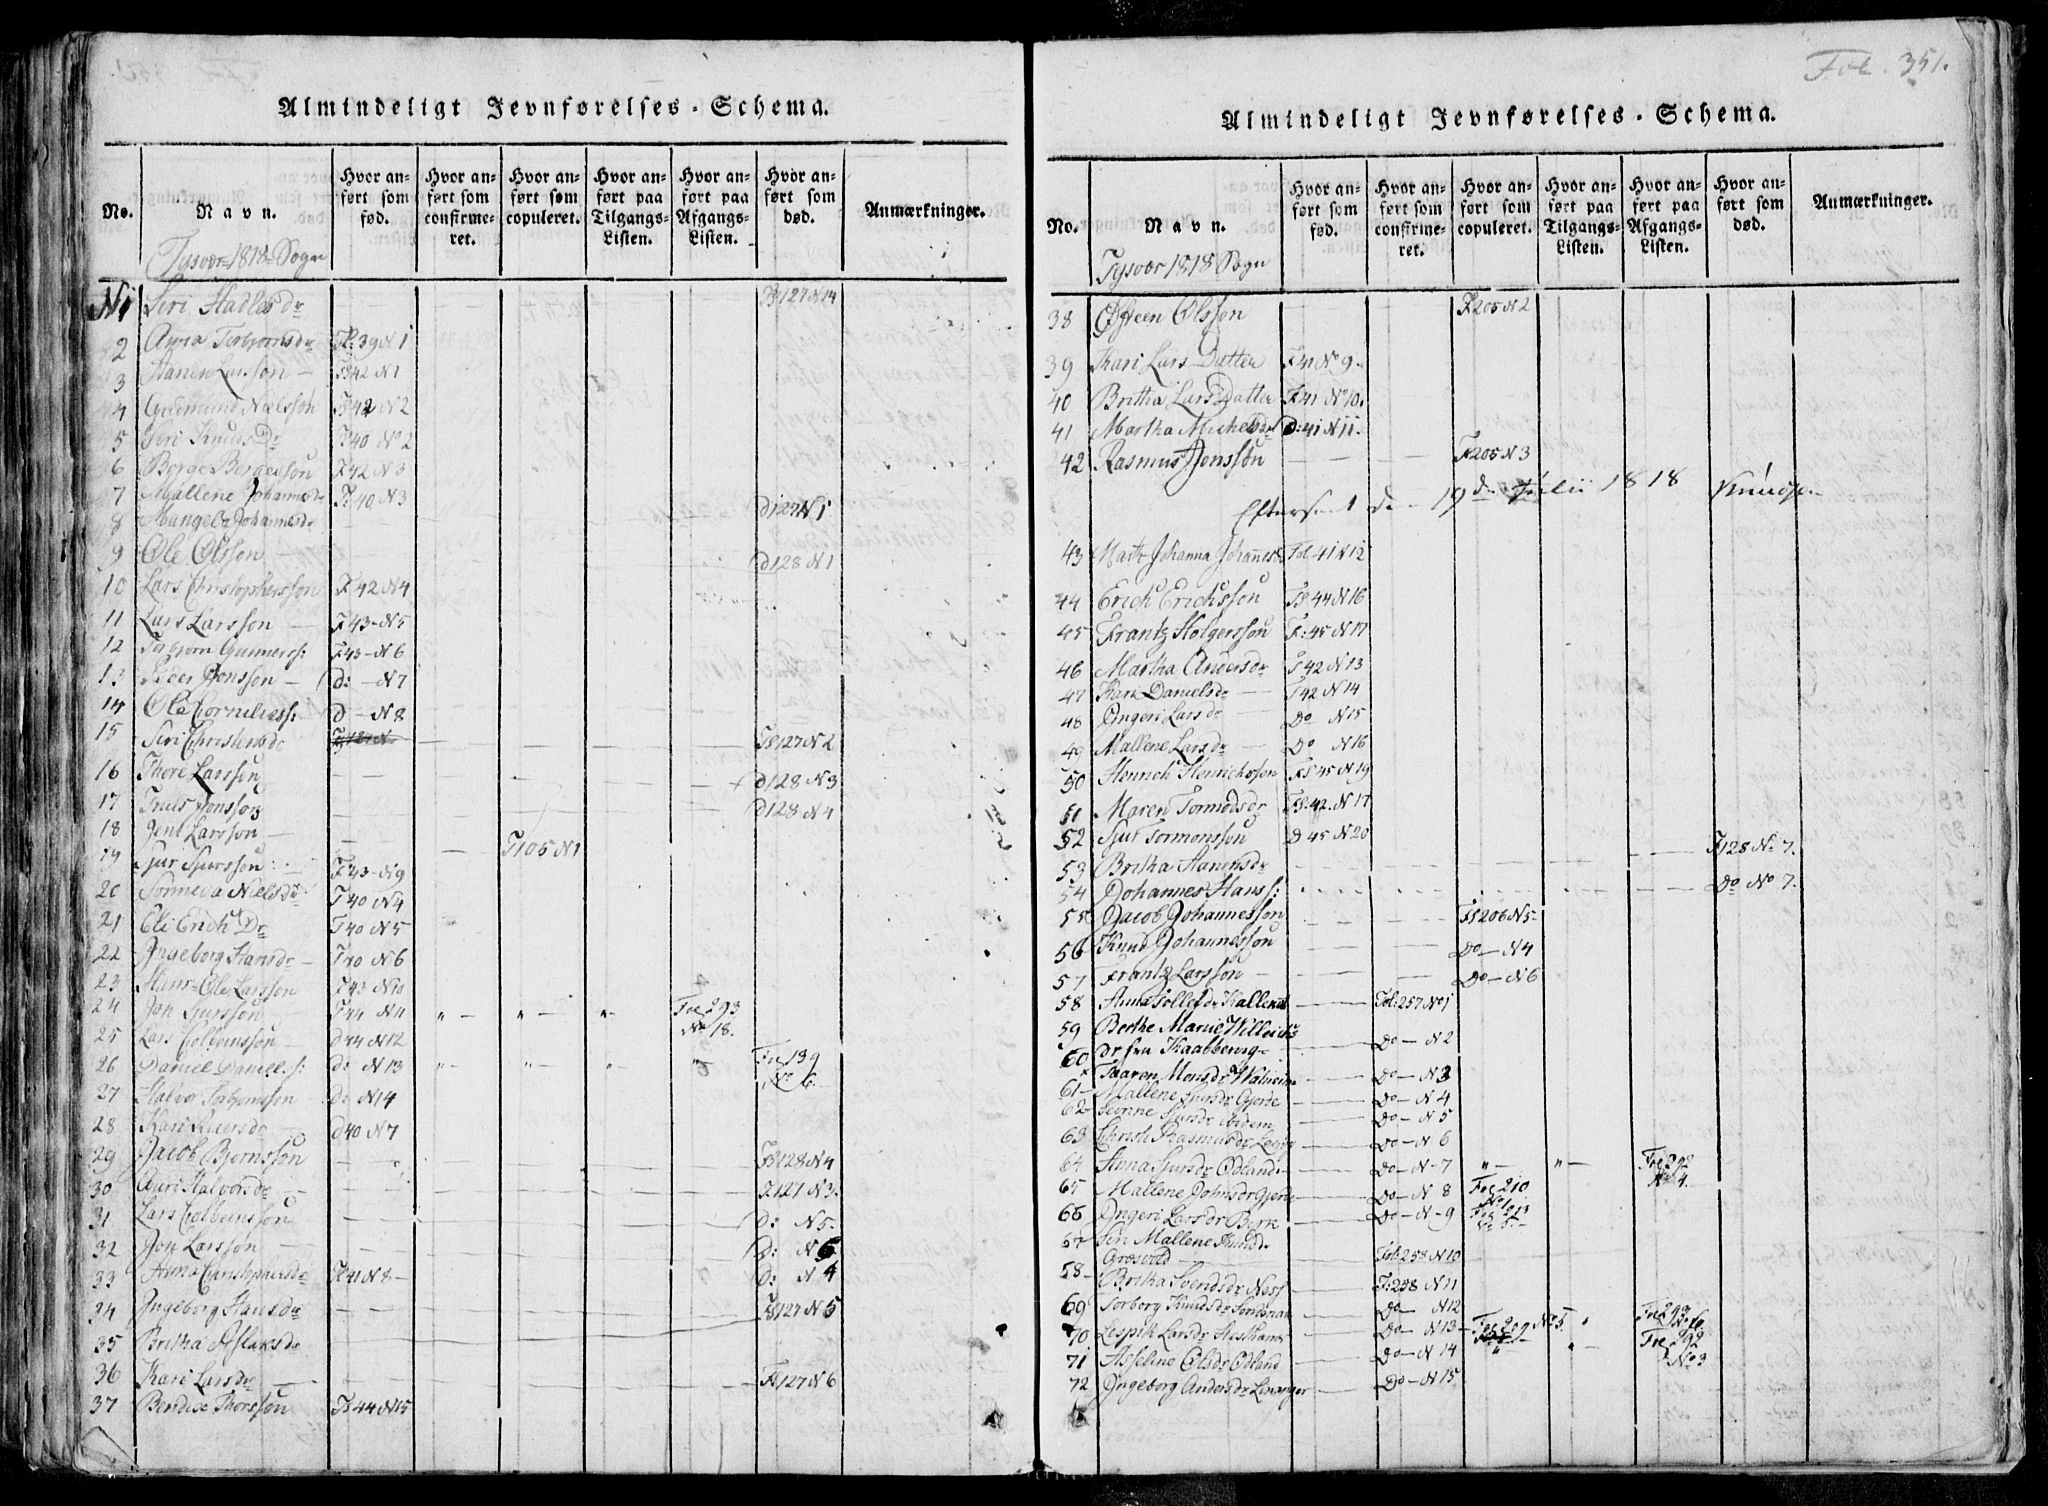 Almindeligt Jevnførelses-Schema.
No. Navn. Hvor anført som fød. Hvor anført som confirmeret. Hvor anført som copuleret. Hvor anført paa Tilgangs-Listen. Hvor anført paa Afgangs-Listen. Hvor anført som død. Anmærkninger.
Tysvær 1818 Sogn
N1 Siri Hadlesdr F 127 N 14
2 Anna Torbjornsdr Fl: 39 N 1
3 Hanes Larsson F 42 N 1
4 Gudmund Nielsson F 42 N 2
5 Siri Knuds Dr F 40 No 2
6 Borge Borgesson F 42 N 3
7 Mallene Johannesdr F 40 N 3
8 Johannesdr d 127 N 1
9 Ole Olsson d 128 N 1
10 Lars Christophersson F 42 N 4
11 Lars Larsson F 43 - N 5
12 Torbjorn Gunnerss: F 43 - N 6
13 Peder Jonsson d: - N 7
14 Ole Corneliuss: d - N 8
15 Siri Christensdr F 127 N 2
16 Thore Larsson d 128 N 3
17 Truls Jonsson d 128 N 4
18 Jens Larsson F 105 N 1
19 Sjur Sjursson F 43 - N 9
20 Nielsdr F 40 N 4
21 Eli Erich Dr F 40 N 5
22 Ingeborg Hansdr F 40 N 6
23 Hans Ole Larsson F 43 N 10
24 Jon Sjursson F 44 N 11 " - " - " - Fol 293 No 18.
25 Lars Colbeinsson d 44 N 12
26 Daniel Daniels: d: N 13 " " " " Fol 139 No 6.
27 Halvor Torbjornsson d: N 14
28 Kari Iversdr d 40 N 7
29 Jacob Bjornsson F 128 N 4
30 Guri Halvorsdr F 127 N 3.
31 Lars Colbeinsson d: N 5.
32 Jon Larsson d: N 6
33 Anna Christophersdr F 41 N 8 d: N 4
34 Ingeborg Hansdr F 127 N 5
35 Britha Aslaksdr
36 Kari Larsdr F 127 N 6
37 Bendix Thorsson F 44 N 15
Fol. 351.
Almindeligt Jevnførelses-Schema.
No. Navn. Hvor anført som fød. Hvor anført som confirmeret. Hvor anført som copuleret. Hvor anført paa Tilgangs-Listen. Hvor anført paa Afgangs-Listen. Hvor anført som død. Anmærkninger.
Tysvær 1818 Sogn
38 Osteen Olsson F 205 N 2
39 Kari Lars Datter F 41 No 9.
40 Britha Lars Datter F 41 No 10.
41 Martha Michelsdr D: 41 N 11.
42 Rasmus Jonsson F 205 N 3
Efterseet den 19de Julii 1818 Knudsen
43 Johanna Johannesdr Fol 41 N 12
44 Erich Erichsson F 44 N 16
45 Frantz Holgersson F: 45 N 17
46 Martha Andersdr F 42 N 13
47 Kari Danielsdr F 42 N 14
48 Ingeri Larsdr Do N 15
49 Mallene Larsdr Do N 16
50 Henrich Henrichsson F 45 N 19
51 Maren Tormodsdr F: 42. N 17
52 Sjur Tormonsson D 45 N 20
53 Britha Hansdr F 128 No 7.
54 Johannes Hanss: Do No 7.
55 Jacob Johannesson F 206 N 5
56 Knud Johannesson Do - N 4
57 Frantz Larsson Do - N 6
58 Anna Fol: 257 No 1
59 Berthe Marie Do - N 2
60 Maren Monsdr Do - N 3
61 Mallene Sjursdr Gjerde Do - N 4
62 Sjursdr ibidem Do - N 5
63 Christi Rasmusdr Do - N 6
64 Anna Sjursdr Odland Do - N 7 " - " - Fol 292 No 4.
65 Mallene Johnsdr Gjerde Do - N 8 Fol 210
66 Ingeri Larsdr Do - N 9
67 Siri Mallene Knudsdr Fol: 258 N 10
58 Britha Svendsdr F: 258 N 11
69 Torborg Knudsdr Do N 12 Fol 293
70 Larsdr Do - N 13 Fol 209 No 5.
71 Asseline Olsdr Odland Do - N 14 Fol 292 No 3
72 Ingeborg Andersdr Do - N 15